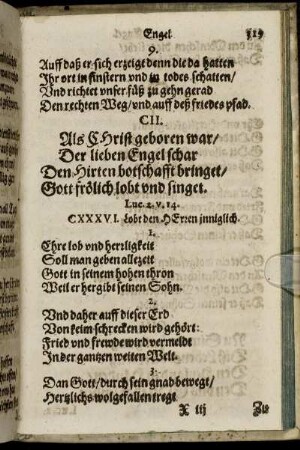 Engel 319
9.
Auff daß er sich erzeige denn die da hatten
Ihr ort in finstern vnd in todes schatten/
Vnd richtet vnser füß zu gehn gerad
Den rechten Weg/ vnd auff deß friedes pfad.
CII.
Als CHrist geboren war/
Der lieben Engel schar
Den Hirten botschafft bringet/
Gott frölich lobt vnd singet.
Luc. 2. v. 14.
CXXXVI. Lobt den HErren inniglich.
1.
Ehre lob vnd herrligkeit
Soll man geben allezeit
Gott in seinem hohen thron
Weil er her gibt seinen Sohn.
2.
Vnd daher auff dieser Erd
Von keim schrecken wird gehört:
Fried vnd frewde wird vermeldt
In der gantzen weiten Welt.
3.
Dan Gott/ durch sein gnad bewegt/
Hertzlichs wolgefallen tregt
X iij Zu